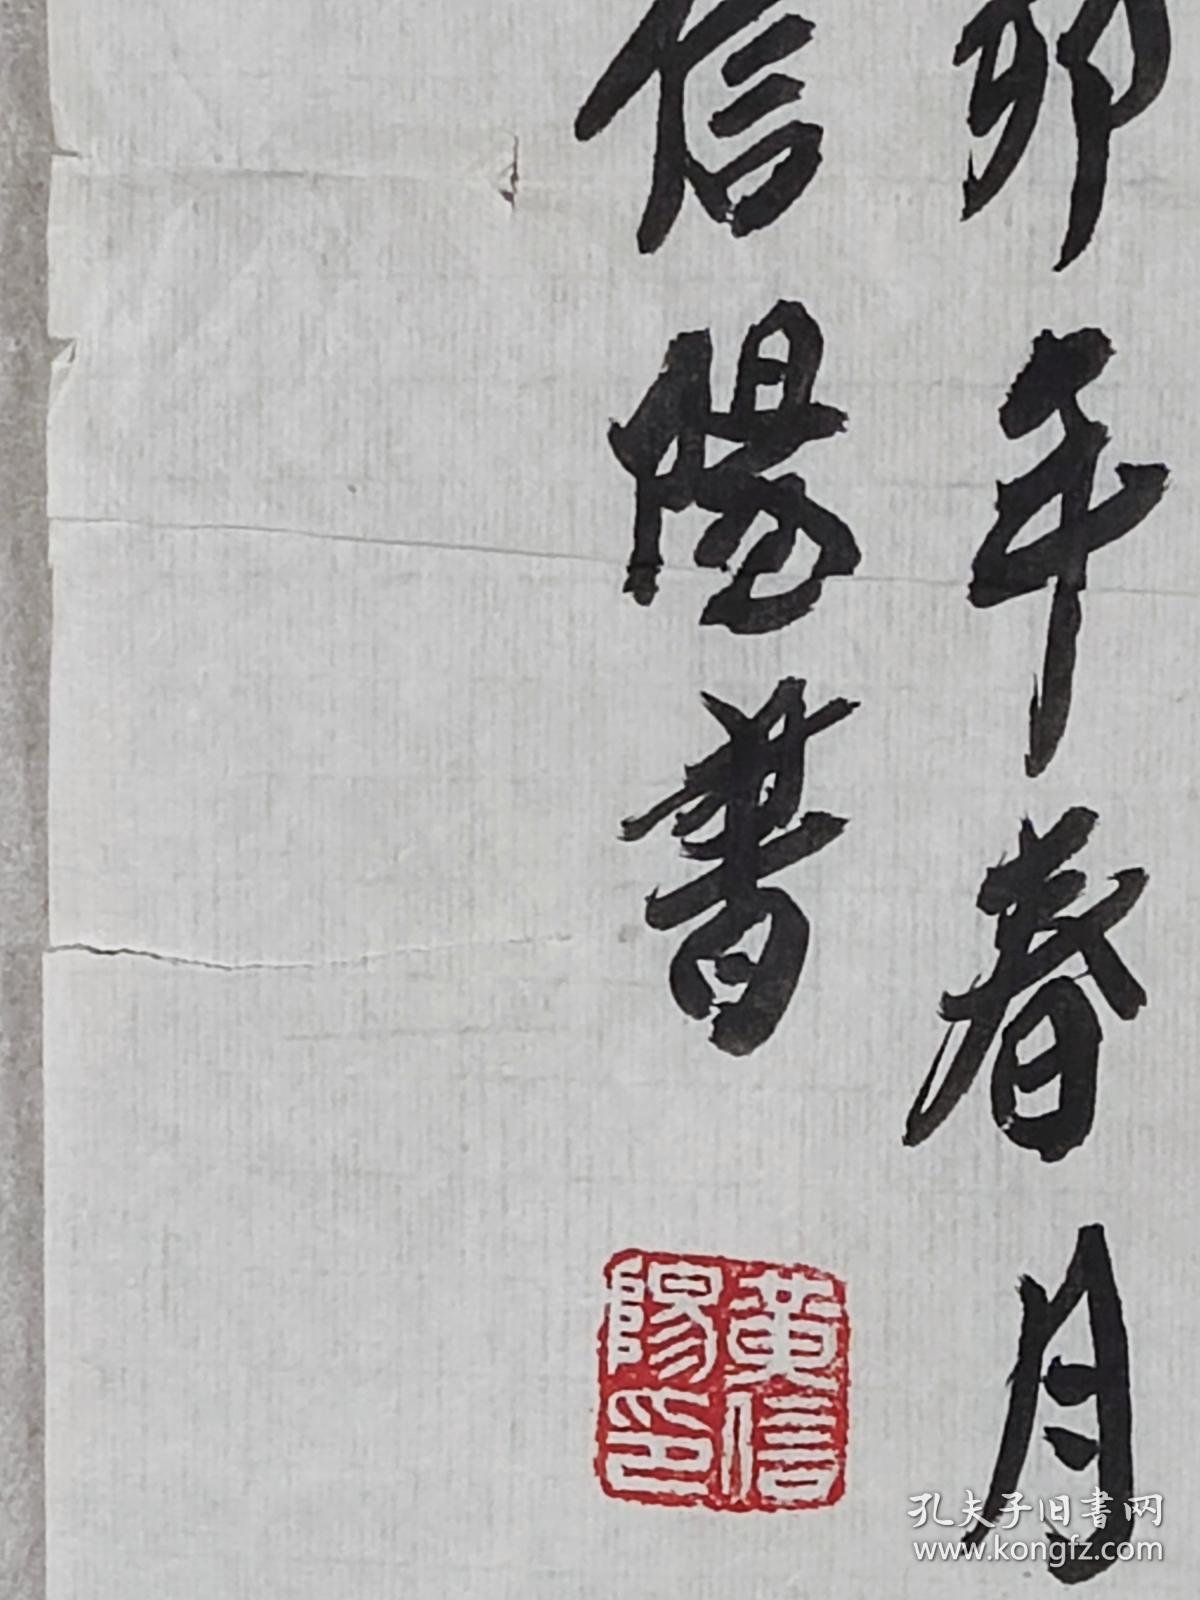 卯年春月
信陽書
黄信
陽印
孔夫子旧书网
www.kongfz.com